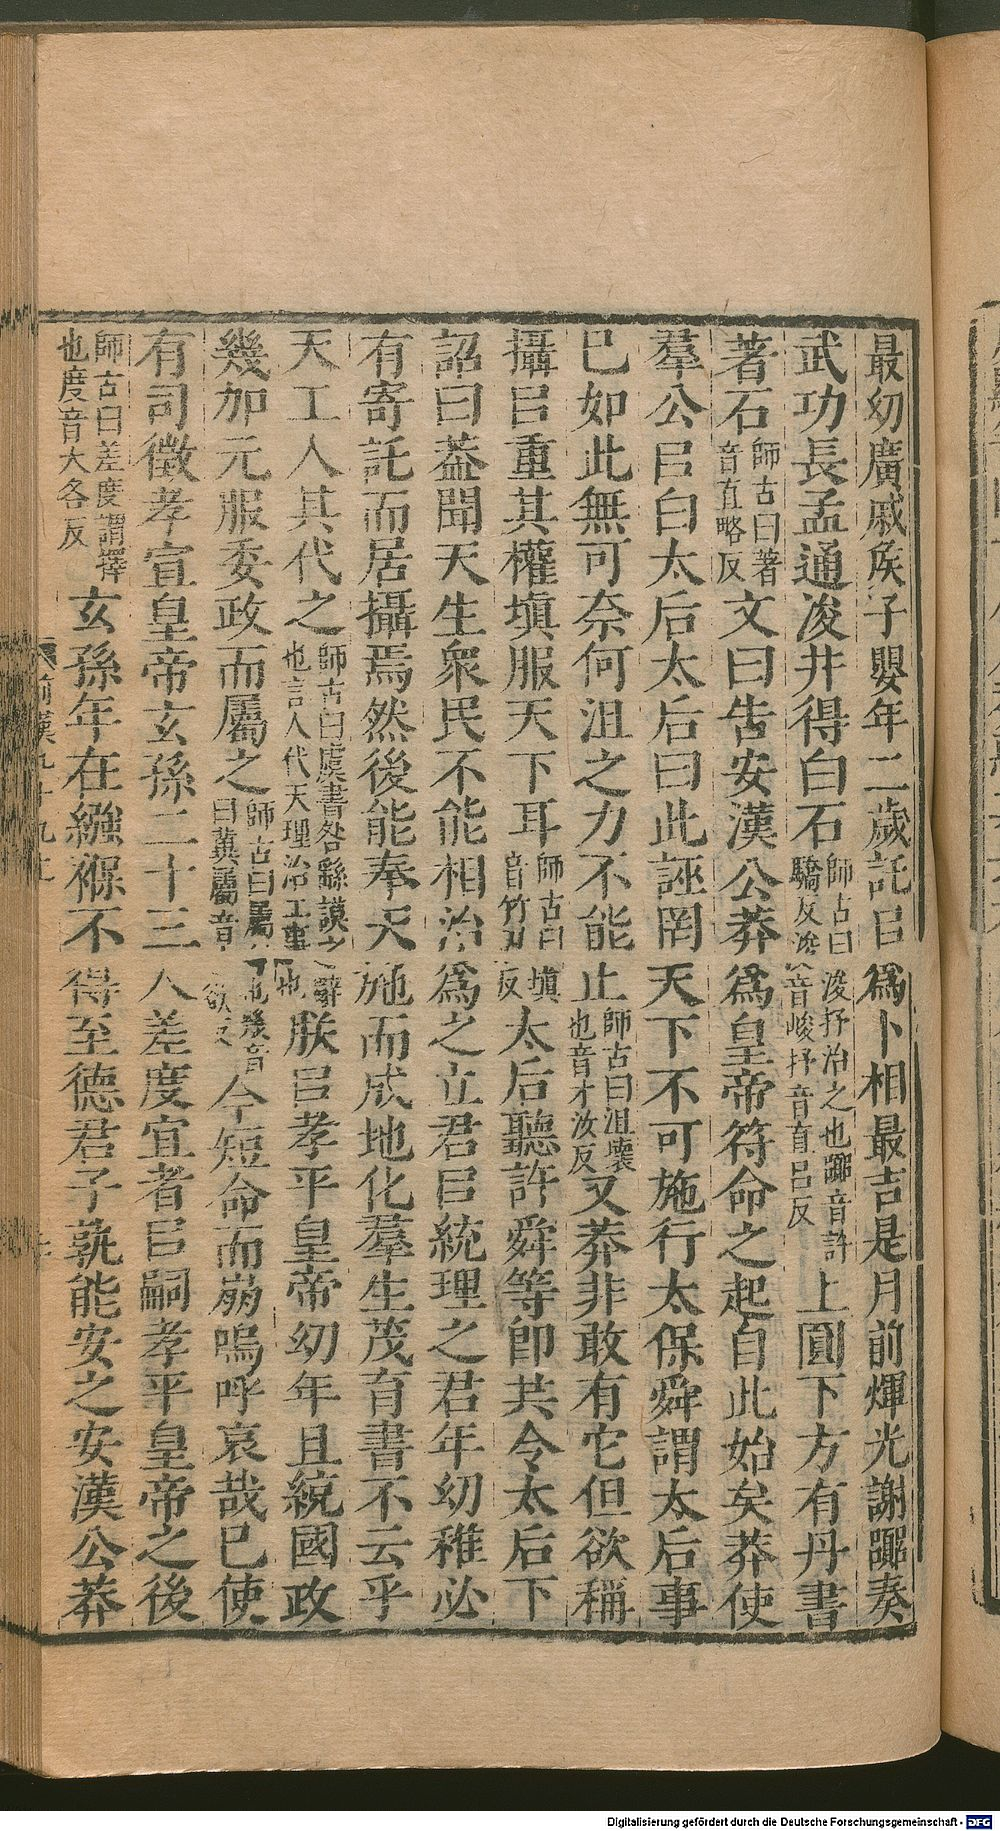 最幼廣戚矦子嬰年二歲託㠯爲卜相最吉是月前煇光謝嚻奏
武功長孟通浚井得白石師古曰浚抒治之也嚻音許驕反浚音峻抒音直呂反上圓下方有丹書
著石師古曰著音直略反文曰告安漢公莽爲皇帝符命之起自此始矣莽使
羣公㠯白太后太后曰此誣罔天下不可施行太保舜謂太后事
已如此無可奈何沮之力不能止師古曰沮壞也音才汝反又莽非敢有它但欲稱
攝㠯重其權塡服天下耳師古曰塡音竹刃反太后聽許舜等卽共令太后下
詔曰葢聞天生衆民不能相治爲之立君㠯統理之君年幼稚必
有寄託而居攝焉然後能奉天施而成地化羣生茂育書不云乎
天工人其代之師古曰虞書咎繇謨之辭也言人代天理治工事也朕㠯孝平皇帝幼年且統國政
幾加元服委政而屬之師古曰幾音曰冀屬音之欲反今短命而崩嗚呼哀哉已使
有司徵孝宣皇帝玄孫二十三人差度宜者㠯嗣孝平皇帝之後
師古曰差度謂擇也度音大各反玄孫年在繈褓不得至德君子孰能安之安漢公莽
前漢九十九上
Digitalisierung gefördert durch die Deutsche Forschungsgemeinschaft - DFG